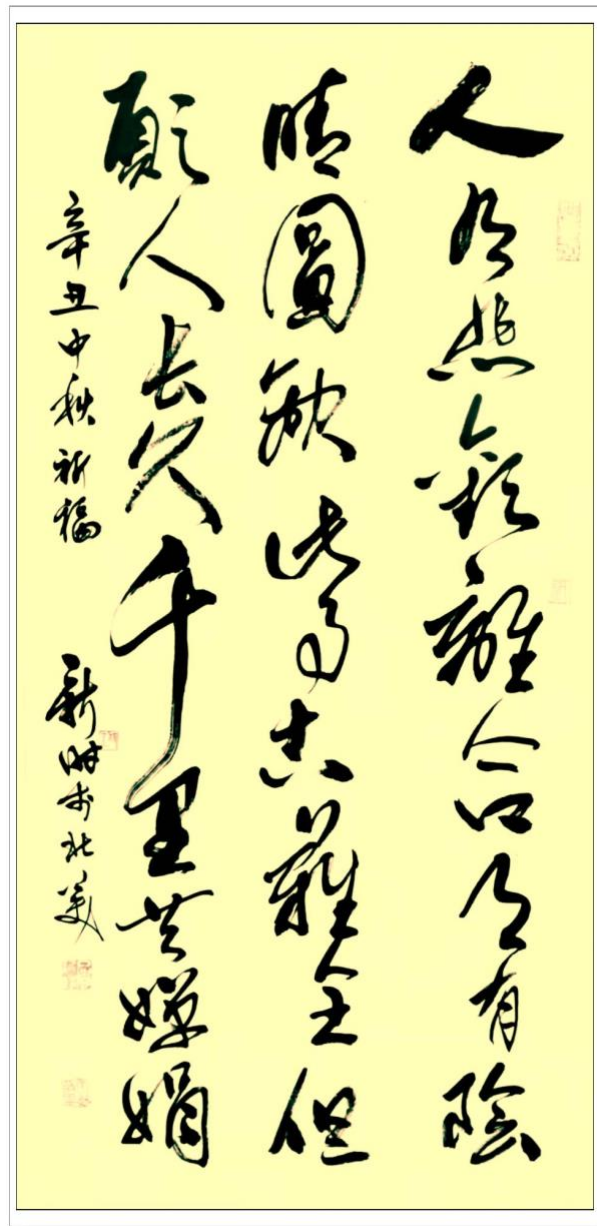 人有悲歡離合月有陰
晴圓缺此事古難全但
願人長久千里共嬋娟
辛丑中秋祈福
新时於北美